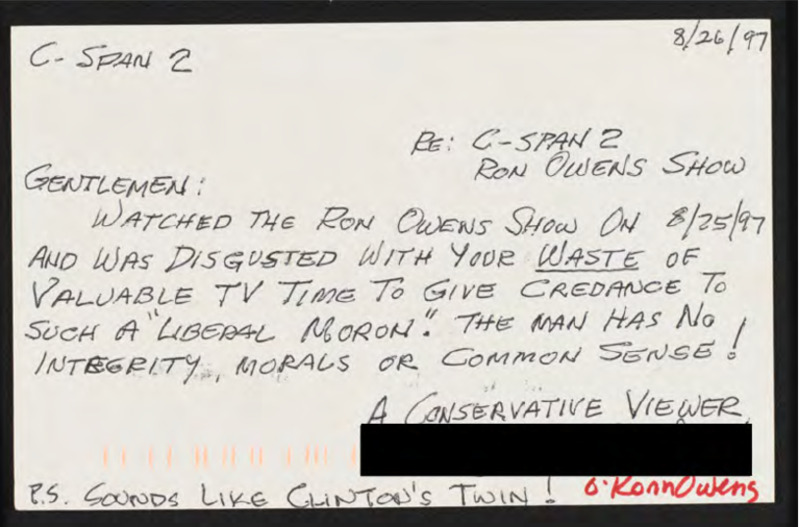 8/26/97
C-SPAN 2
RE: C-SPAN 2
RON OWENS SHOW
GENTLEMEN:
WATCHED THE RON OWENS SHOW ON 8/25/97
AND WAS DISGUSTED WITH YOUR WASTE OF
VALUABLE TV TIME TO GIVE CREDANCE TO
SUCH A "LIBERAL MORON". THE MAN HAS NO
INTEGRITY, MORALS OR COMMON SENSE!
A CONSERVATIVE VIEWER
P.S. SOUNDS LIKE CLINTON'S TWIN! G. Ronn Owens